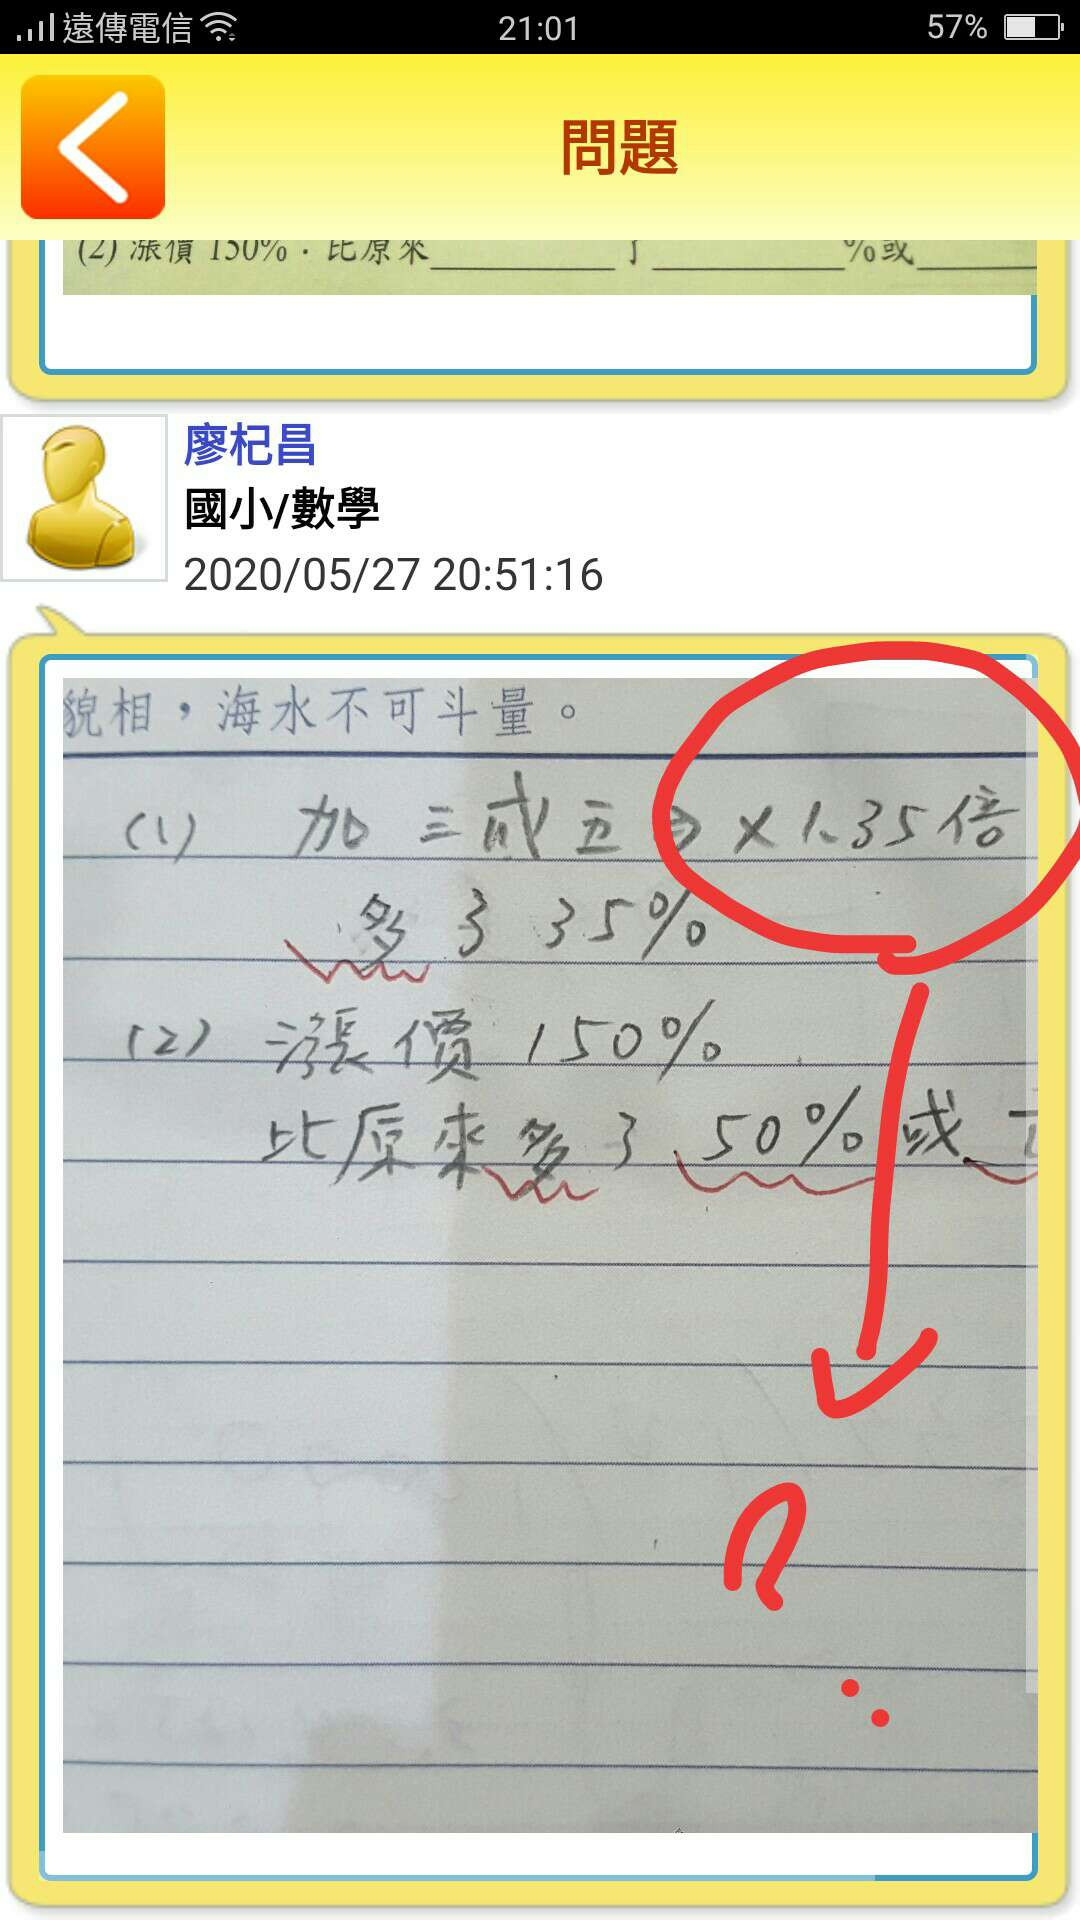 遠傳電信 21:01 57%
問題
(2) 漲價 150%：比原來______了______%或______
廖杞昌
國小/數學
2020/05/27 20:51:16
貌相，海水不可斗量。
(1) 加三成五 ⇒ ×1.35倍
多了 35%
(2) 漲價 150%
比原來多了 50% 或
?